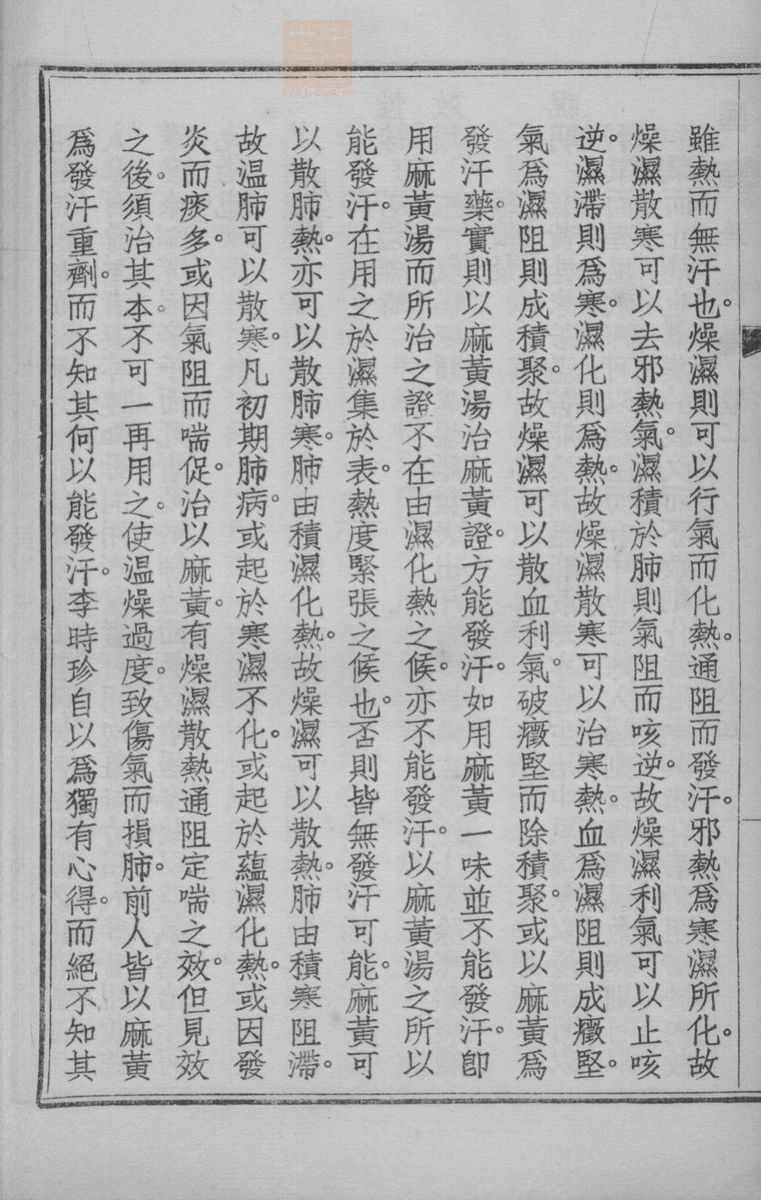 雖熱而無汗也。燥濕則可以行氣而化熱。通阻而發汗。邪熱爲寒濕所化。故
燥濕散寒可以去邪熱氣。濕積於肺則氣阻而咳逆。故燥濕利氣可以止咳
逆。濕滯則爲寒。濕化則爲熱。故燥濕散寒可以治寒熱。血爲濕阻則成癥堅。
氣爲濕阻則成積聚。故燥濕可以散血利氣。破癥堅而除積聚。或以麻黃爲
發汗藥。實則以麻黃湯治麻黃證。方能發汗。如用麻黃一味並不能發汗。卽
用麻黃湯而所治之證不在由濕化熱之候。亦不能發汗。以麻黃湯之所以
能發汗。在用之於濕集於表。熱度緊張之候也。否則皆無發汗可能。麻黃可
以散肺熱。亦可以散肺寒。肺由積濕化熱。故燥濕可以散熱。肺由積寒阻滯。
故温肺可以散寒。凡初期肺病。或起於寒濕不化。或起於蘊濕化熱。或因發
炎而痰多。或因氣阻而喘促。治以麻黃。有燥濕散熱通阻定喘之效。但見效
之後。須治其本。不可一再用之。使温燥過度。致傷氣而損肺。前人皆以麻黃
爲發汗重劑。而不知其何以能發汗。李時珍自以爲獨有心得。而絕不知其